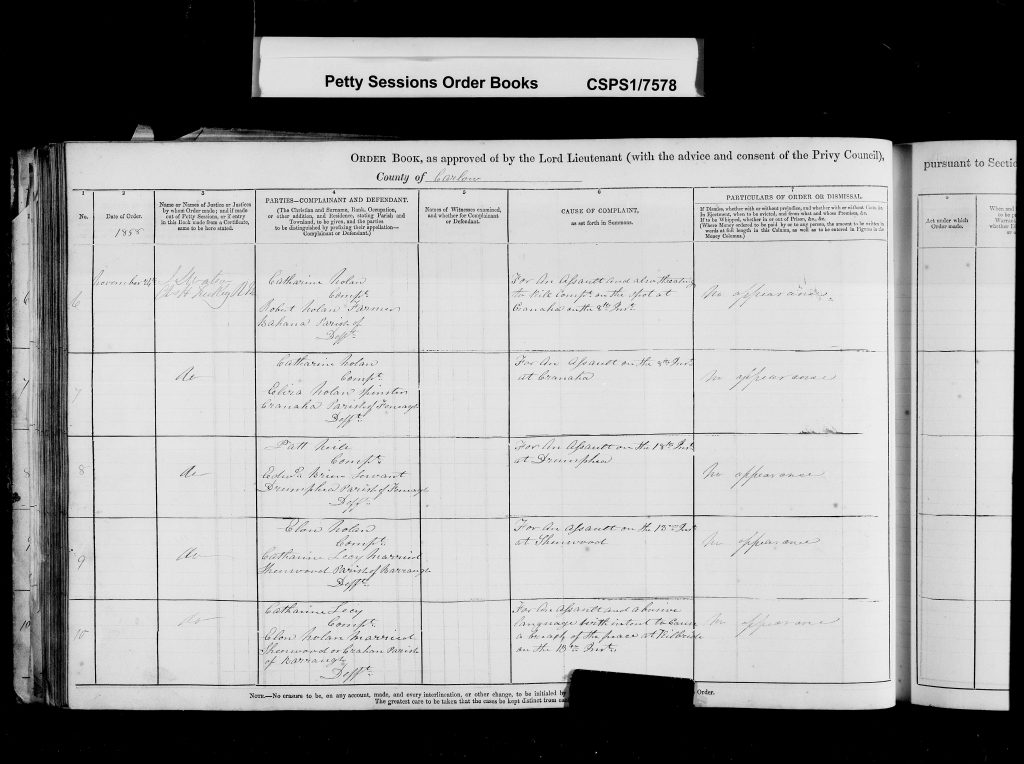 Petty Sessions Order Books CSPS1/7578
ORDER BOOK, as approved of by the Lord Lieutenant (with the advice and consent of the Privy Council),
pursuant to Sectio
County of Carlow
1 2 3 4 5 6 7
No.
Date of Order.
1858
Name or Names of Justice or Justices
by whom Order made; and if made
out of Petty Sessions, or if entry
in this Book made from a Certificate,
same to be here stated.
PARTIES—COMPLAINANT AND DEFENDANT.
(The Christian and Surname, Rank, Occupation,
or other addition, and Residence, stating Parish and
Townland, to be given, and the parties
to be distinguished by prefixing their appellation—
Complainant or Defendant.)
Names of Witnesses examined,
and whether for Complainant
or Defendant.
CAUSE OF COMPLAINT,
as set forth in Summons.
PARTICULARS OF ORDER OR DISMISSAL.
If Dismiss, whether with or without prejudice, and whether with or without Costs, &c.
In Ejectment, when to be evicted, and from what and whose Premises, &c.
If to be Whipped, whether in or out of Prison, &c., &c.
(Where Money ordered to be paid by or to any person, the amount to be written in
words at full length in this Column, as well as to be entered in Figures in the
Money Columns.)
Act under which
Order made.
6
November 24th
Catharine Nolan
Compt.
Robert Nolan Farmer
Parish of
Defft.
For An Assault and also
to Kill Compt. on the spot at
Cranaha on the 8th Inst.
No appearance
7
do
Catharine Nolan
Compt.
Nolan Spinster
Cranaha Parish of Fenagh
Defft.
For An Assault on the 8th Inst.
at Cranaha
No appearance
8
do
Patt
Compt.
Brien Servant
Drumphea Parish of Fenagh
Defft.
For An Assault on the 18th Inst.
at Drumphea
No appearance
9
do
Elen Nolan
Compt.
Catharine Lecy Married
Shenwood Parish of Barragh
Defft.
For An Assault on the 13th Inst.
at Shenwood
No appearance
10
do
Catharine Lecy
Compt.
Elen Nolan Married
Shenwood or Parish
of Barragh
Defft.
For An Assault and abusive
language with intent to Cause
a breach of the peace at Kilbride
on the 13th Inst.
No appearance
NOTE.—No erasure to be, on any account, made, and every interlineation, or other change, to be initialed by
Order.
The greatest care to be taken that the cases be kept distinct from